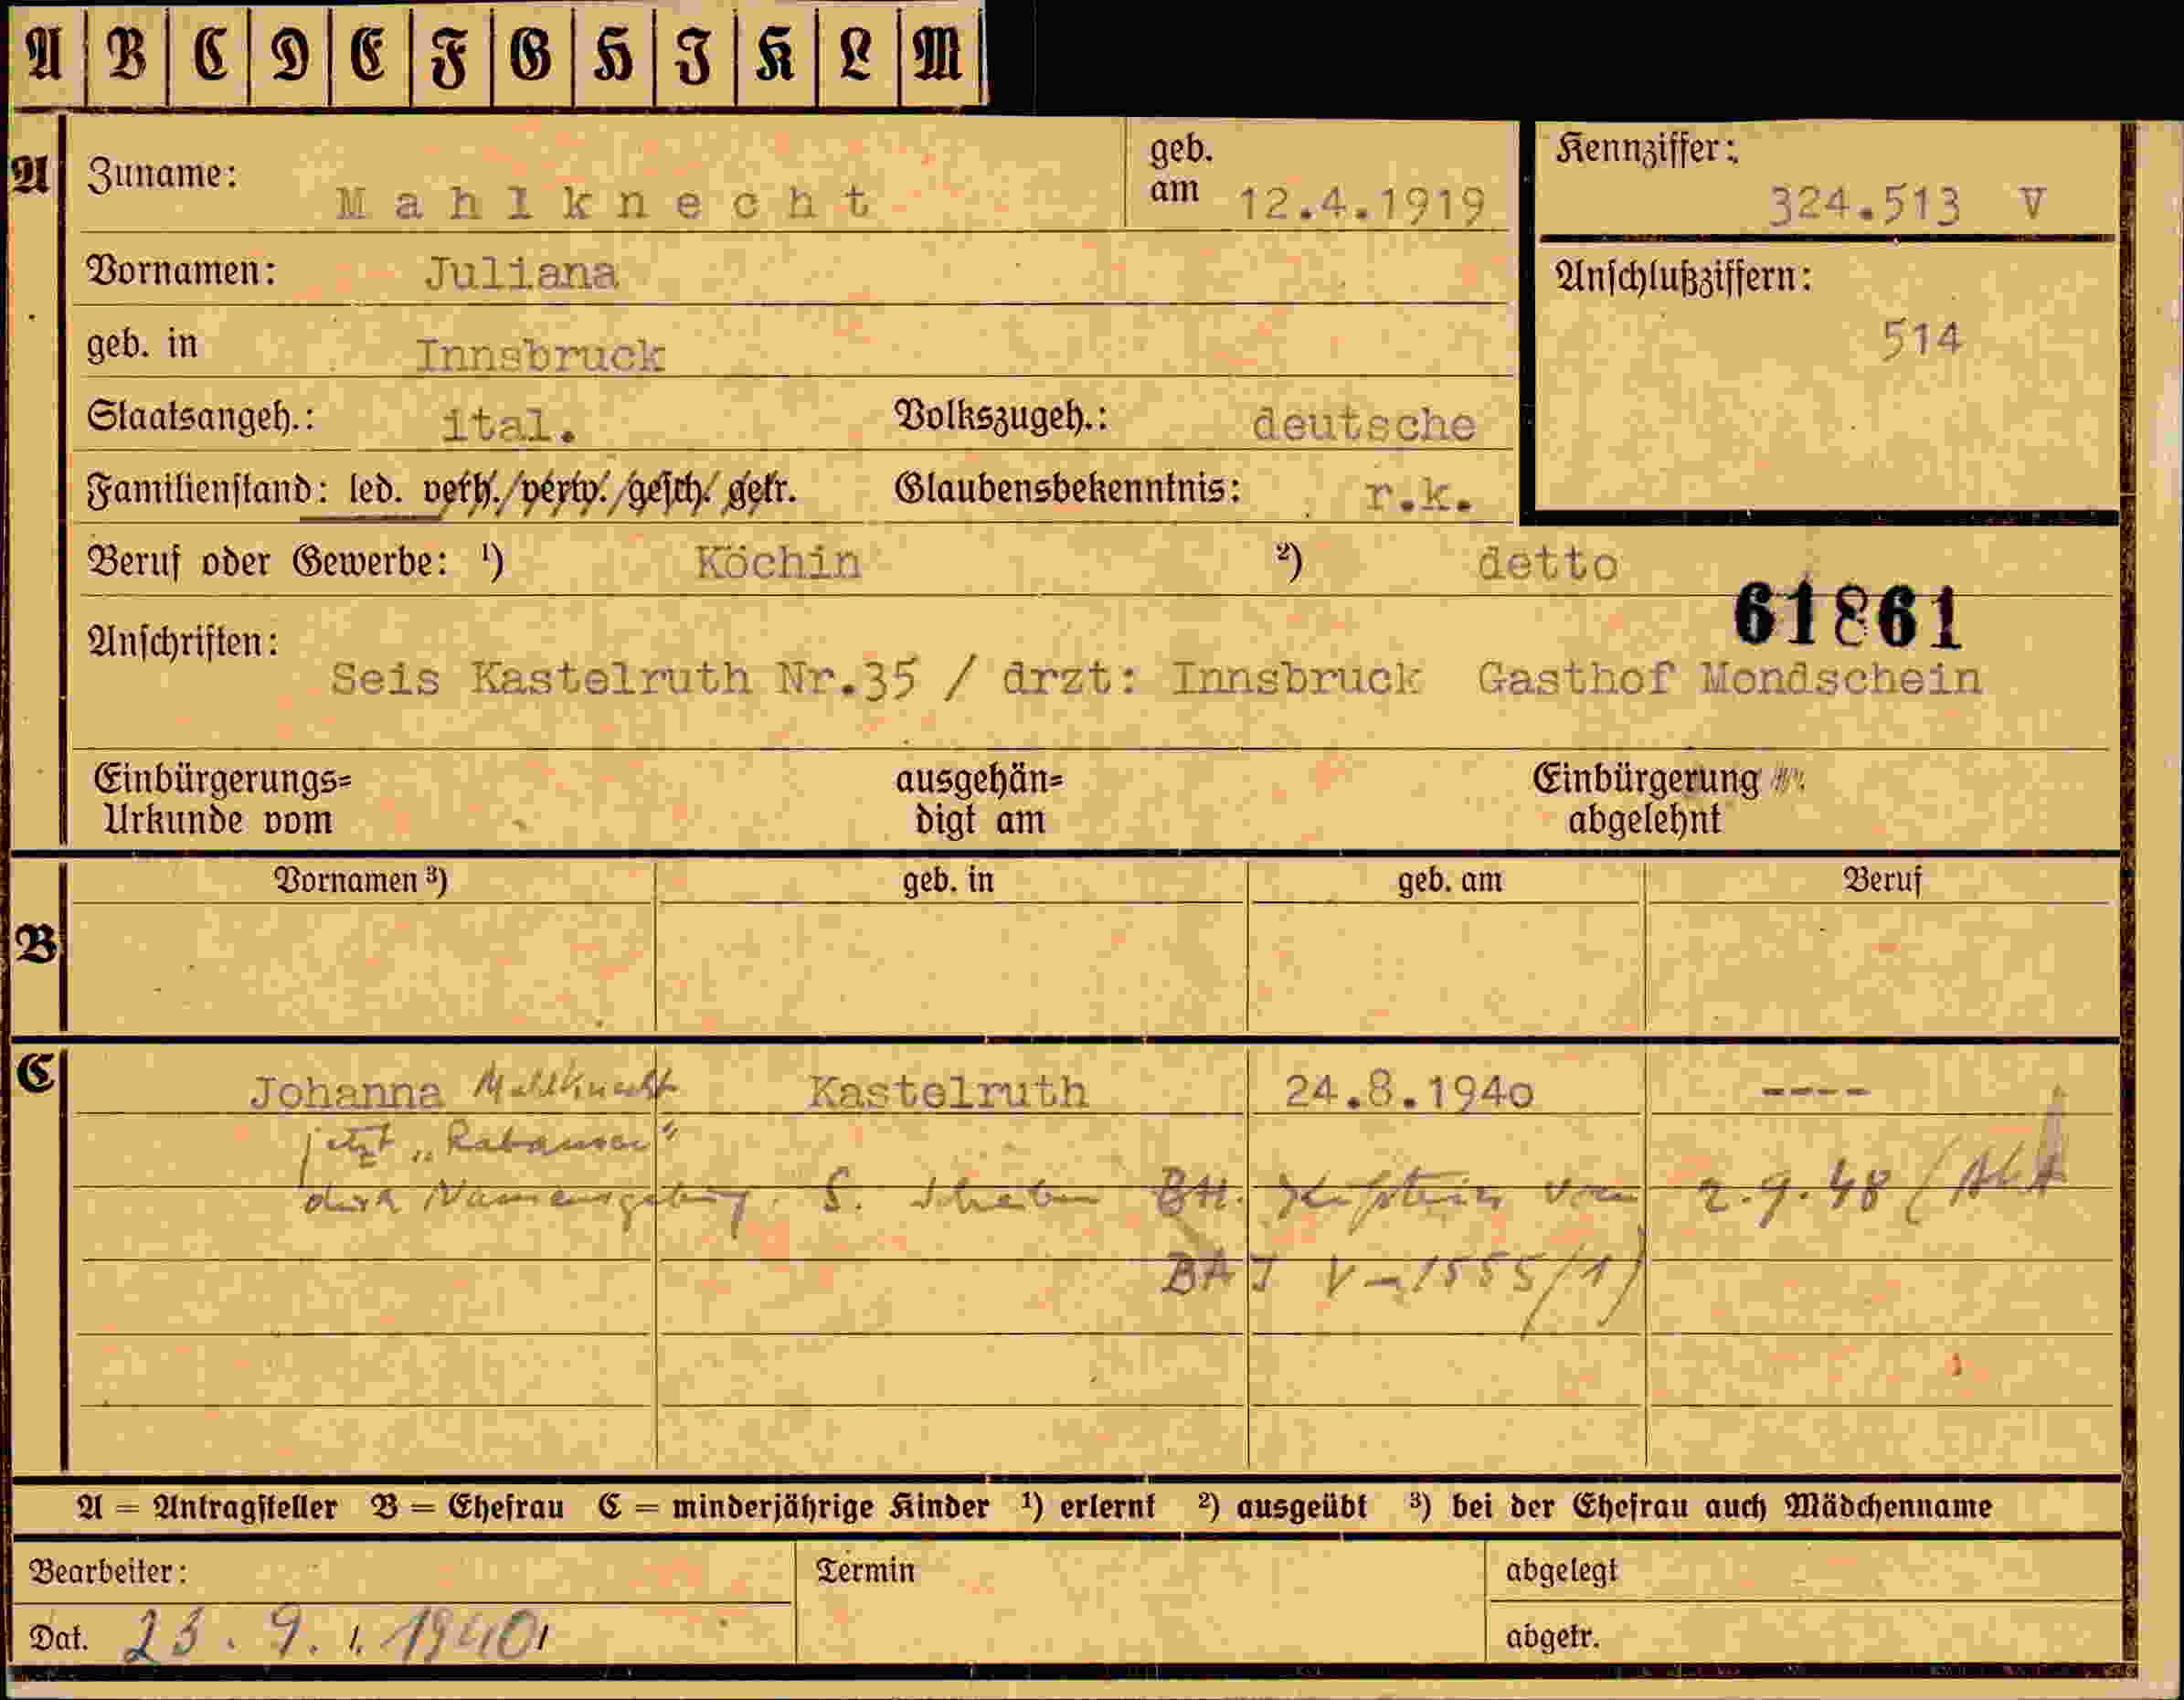 A B C D E F G H I K L M
A Zuname: Mahlknecht geb. am 12.4.1919 Kennziffer: 324.513 V
Vornamen: Juliana Anschlußziffern:
geb. in Innsbruck 514
Staatsangeh.: ital. Volkszugeh.: deutsche
Familienstand: led. verh./verw./gesch./getr. Glaubensbekenntnis: r.k.
Beruf oder Gewerbe: ¹) Köchin ²) detto
61861
Anschriften: Seis Kastelruth Nr.35 / drzt: Innsbruck Gasthof Mondschein
Einbürgerungs= ausgehän= Einbürgerung
Urkunde vom digt am abgelehnt
Vornamen ³) geb. in geb. am Beruf
B
C Johanna Mahlknecht Kastelruth 24.8.1940 ----
jetzt
durch Namensgebung. S. Schreiben BH. Kufstein vom 2.9.48 (Akt
BAI V-1555/1)
A = Antragsteller B = Ehefrau C = minderjährige Kinder ¹) erlernt ²) ausgeübt ³) bei der Ehefrau auch Mädchenname
Bearbeiter: Termin abgelegt
Dat. 23.9.1940 abgetr.